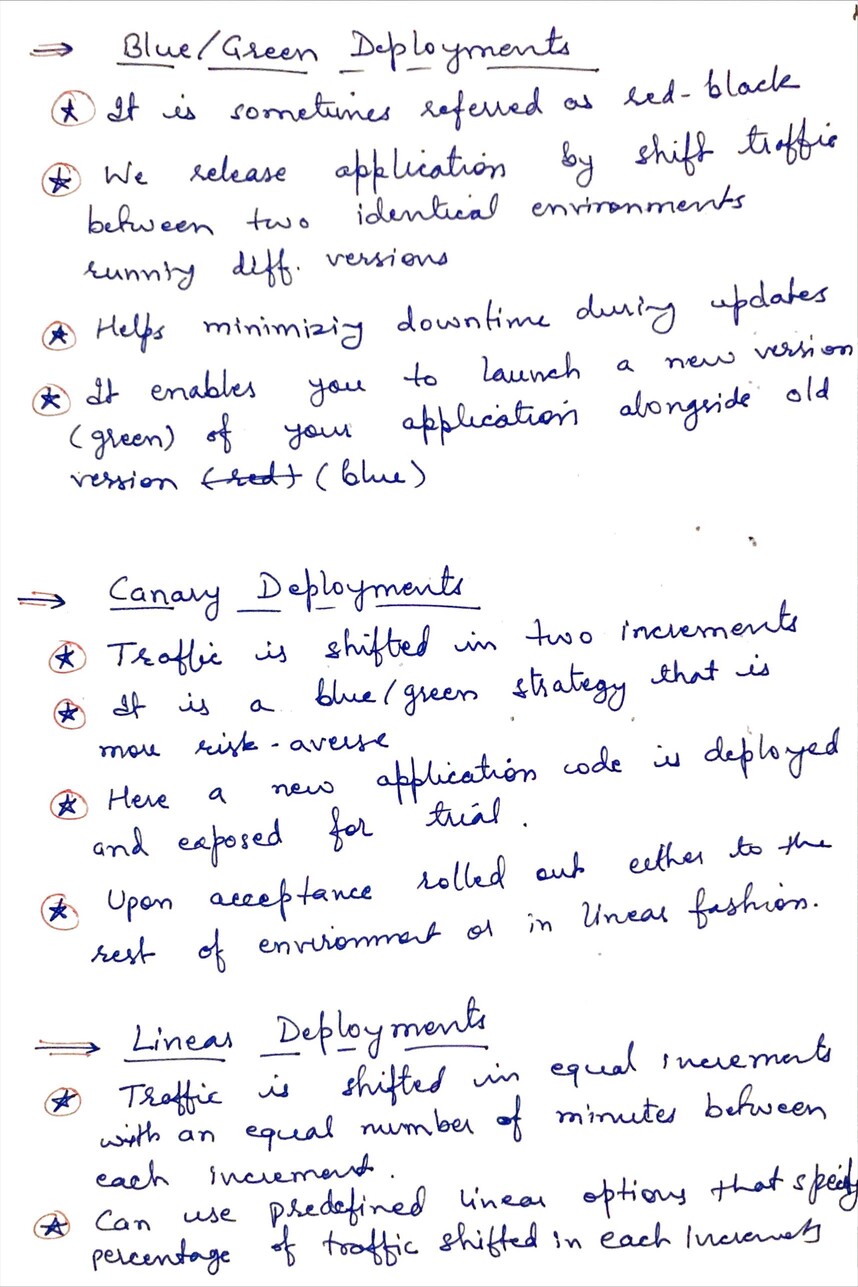 ⇒ Blue/Green Deployments
★ It is sometimes referred as red-black
★ We release application by shift traffic
between two identical environments
running diff. versions
★ Helps minimizig downtime during updates
★ It enables you to launch a new version
(green) of your application alongside old
version (red) (blue)
⇒ Canary Deployments
★ Traffic is shifted in two increments
★ It is a blue/green strategy that is
more risk-averse
★ Here a new application code is deployed
and exposed for trial.
★ Upon acceptance rolled out either to the
rest of environment or in linear fashion.
⇒ Linear Deployments
★ Traffic is shifted in equal increments
with an equal number of minutes between
each increment.
★ Can use predefined linear options that specify
percentage of traffic shifted in each Increments